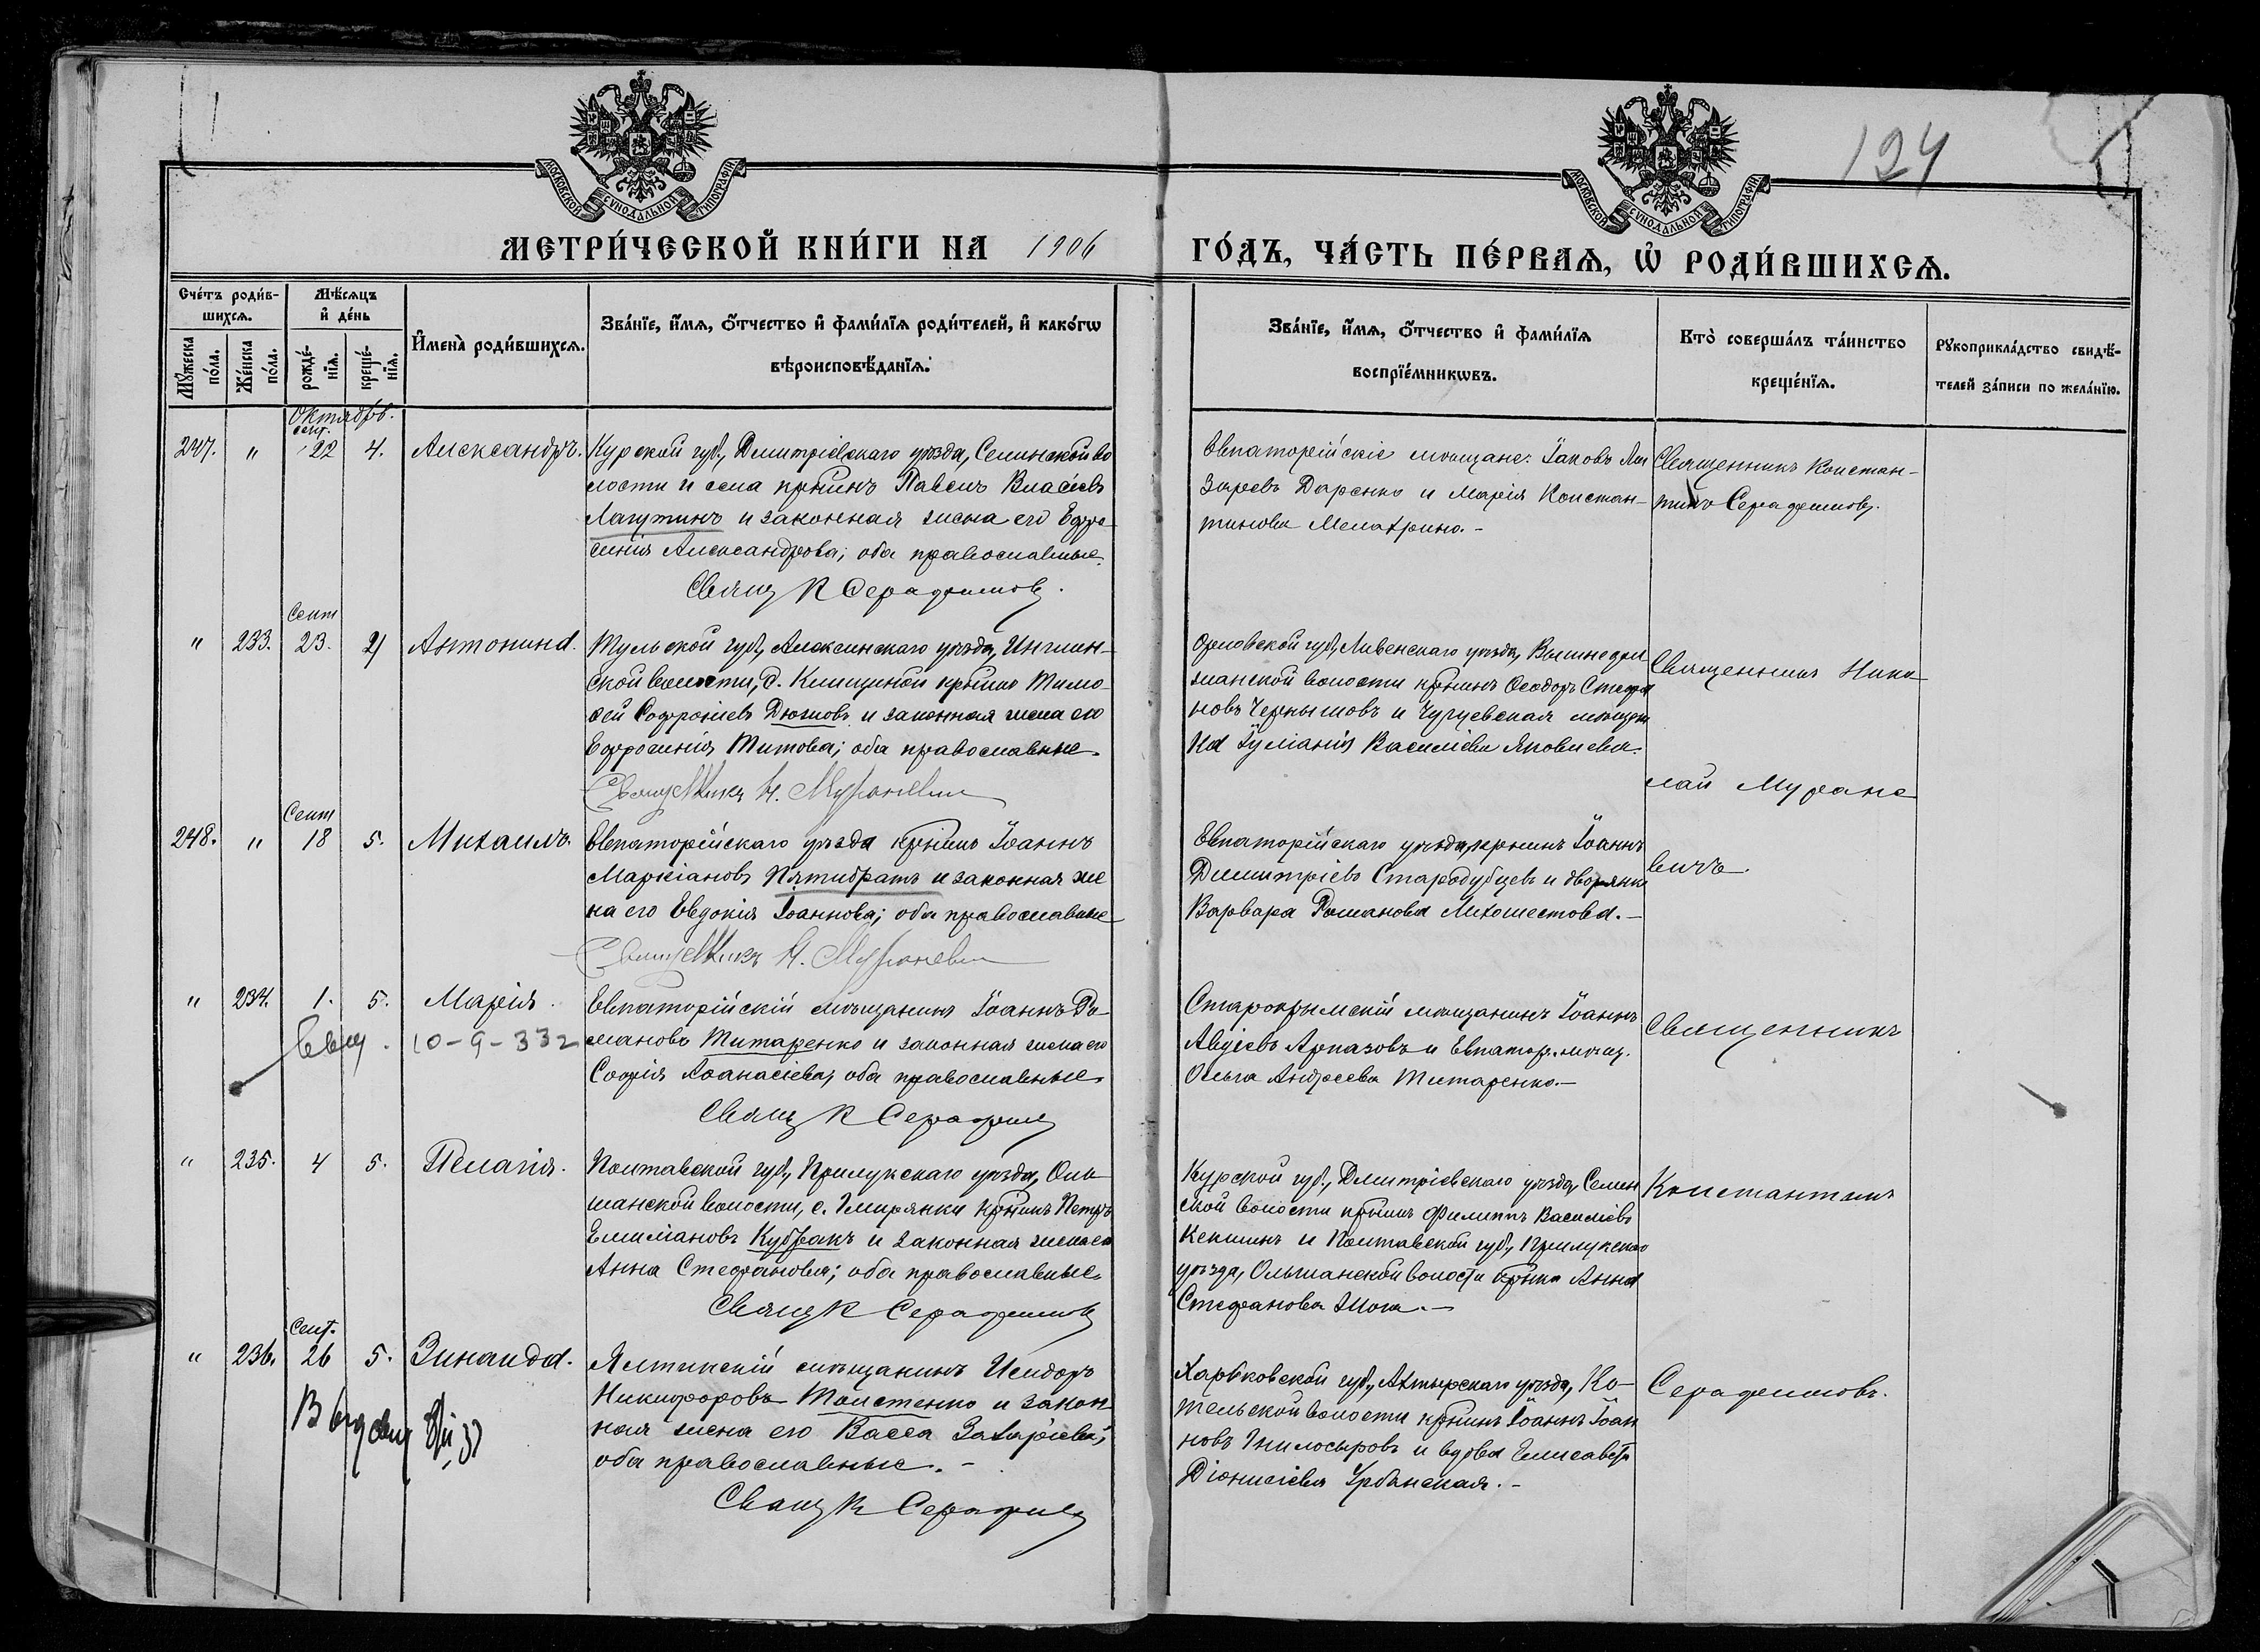 124
МОСКОВСКОЙ СУНОДАЛЬНОЙ ТИПОГРАФІИ
МОСКОВСКОЙ СУНОДАЛЬНОЙ ТИПОГРАФІИ
МЕТРИ́ЧЕСКОЙ КНИ́ГИ НА 1906
ГО́ДЪ, ЧА́СТЬ ПЕ́РВАѦ, Ѡ҆ РОДИ́ВШИХСѦ.
Сче́тъ роди́в-
шихсѧ.
Мѣ́сѧцъ
и҆ де́нь
Мꙋ́жеска по́ла.
Же́нска по́ла.
рожде́-
нїѧ.
креще́-
нїѧ.
И҆мена̀ роди́вшихсѧ.
Зва́нїе, и҆́мѧ, ѻ҆́тчество и҆ фами́лїѧ роди́телей, и҆ како́гѡ
вѣроисповѣ́данїѧ.
Зва́нїе, и҆́мѧ, ѻ҆́тчество и҆ фами́лїѧ
воспрїе́мникѡвъ.
Кто̀ соверша́лъ та́инство
креще́нїѧ.
Рꙋкоприкла́дство свидѣ́-
телей за́писи по жела́нїю.
Октябрь.
сент.
247. " 22 4. Александръ.
Курской губ., Дмитріевскаго уѣзда, Селинской во
лости и села крнинъ Павелъ Власіевъ
Лагутинъ и законная жена его Евфро-
синія Александрова; оба православные.
Свящ К Серафимовъ.
Евпаторійскіе мѣщане: Іаковъ Ла
заревъ Даренко и Марія Констан-
тинова Мелахрино.-
Священникъ Констан-
тинъ Серафимовъ.
Сент
" 233. 23. 4 Антонина.
Тульской губ., Алексинскаго уѣзда,
ской волости, д. крнинъ Тимо-
ѳей Софроніевъ Дюжовъ и законная жена его
Евфросинія Титова; оба православные.
Священникъ Н. Мураневич
Орловской губ., Ливенскаго уѣзда,
волости крнинъ Ѳеодоръ Стефа
новъ Чернышовъ и Чугуевская мѣщан
ка Іуліанія Василіева Яковлева.
Священникъ Нико
лай Муране
вичъ.
Сент
248. " 18 5. Михаилъ.
Евпаторійскаго уѣзда крнинъ Іоаннъ
Маркіановъ Пятибратъ и законная же
на его Евдокія Іоаннова; оба православные
Священникъ Н. Мураневич
Евпаторійскаго уѣзда, крнинъ Іоаннъ
Димитріевъ Стародубцевъ и дворянка
Варвара Романова Лихошестова.-
" 234. 1. 5. Марія.
10-9-332
Евпаторійскій мѣщанинъ Іоаннъ Ро-
мановъ Титаренко и законная жена его
Софія Аѳанасіева; оба православные.
Свящ К Серафим
Старокрымскій мѣщанинъ Іоаннъ
Авдіевъ Арпазовъ и Евпатор. мѣщ.
Ольга Андреева Титаренко.-
Священникъ
" 235. 4 5. Пелагія.
Полтавской губ., Прилукскаго уѣзда, Оль
шанской волости, с. Гмирянки крнинъ Петръ
Емиліановъ Кубракъ и законная жена его
Анна Стефановна; оба православные.
Свящ К Серафимовъ
Курской губ., Дмитріевскаго уѣзда, Селин
ской волости крнинъ Филиппъ Василіевъ
Кекшинъ и Полтавской губ., Прилукскаго
уѣзда, Ольшанской волости крнка Анна
Стефанова
Константинъ
Сент.
" 236. 26 5. Зинаида.
Ялтинскій мѣщанинъ Исидоръ
Никифоровъ Толстенко и закон
ная жена его Васса Захаріева;
оба православные.-
Свящ К Серафим
Харьковской губ., Ахтырскаго уѣзда, Ко-
тельской волости крнинъ Іоаннъ Іоан
новъ Гнилосыровъ и вдова Елисавета
Діонисіева Урбанская.-
Серафимовъ.